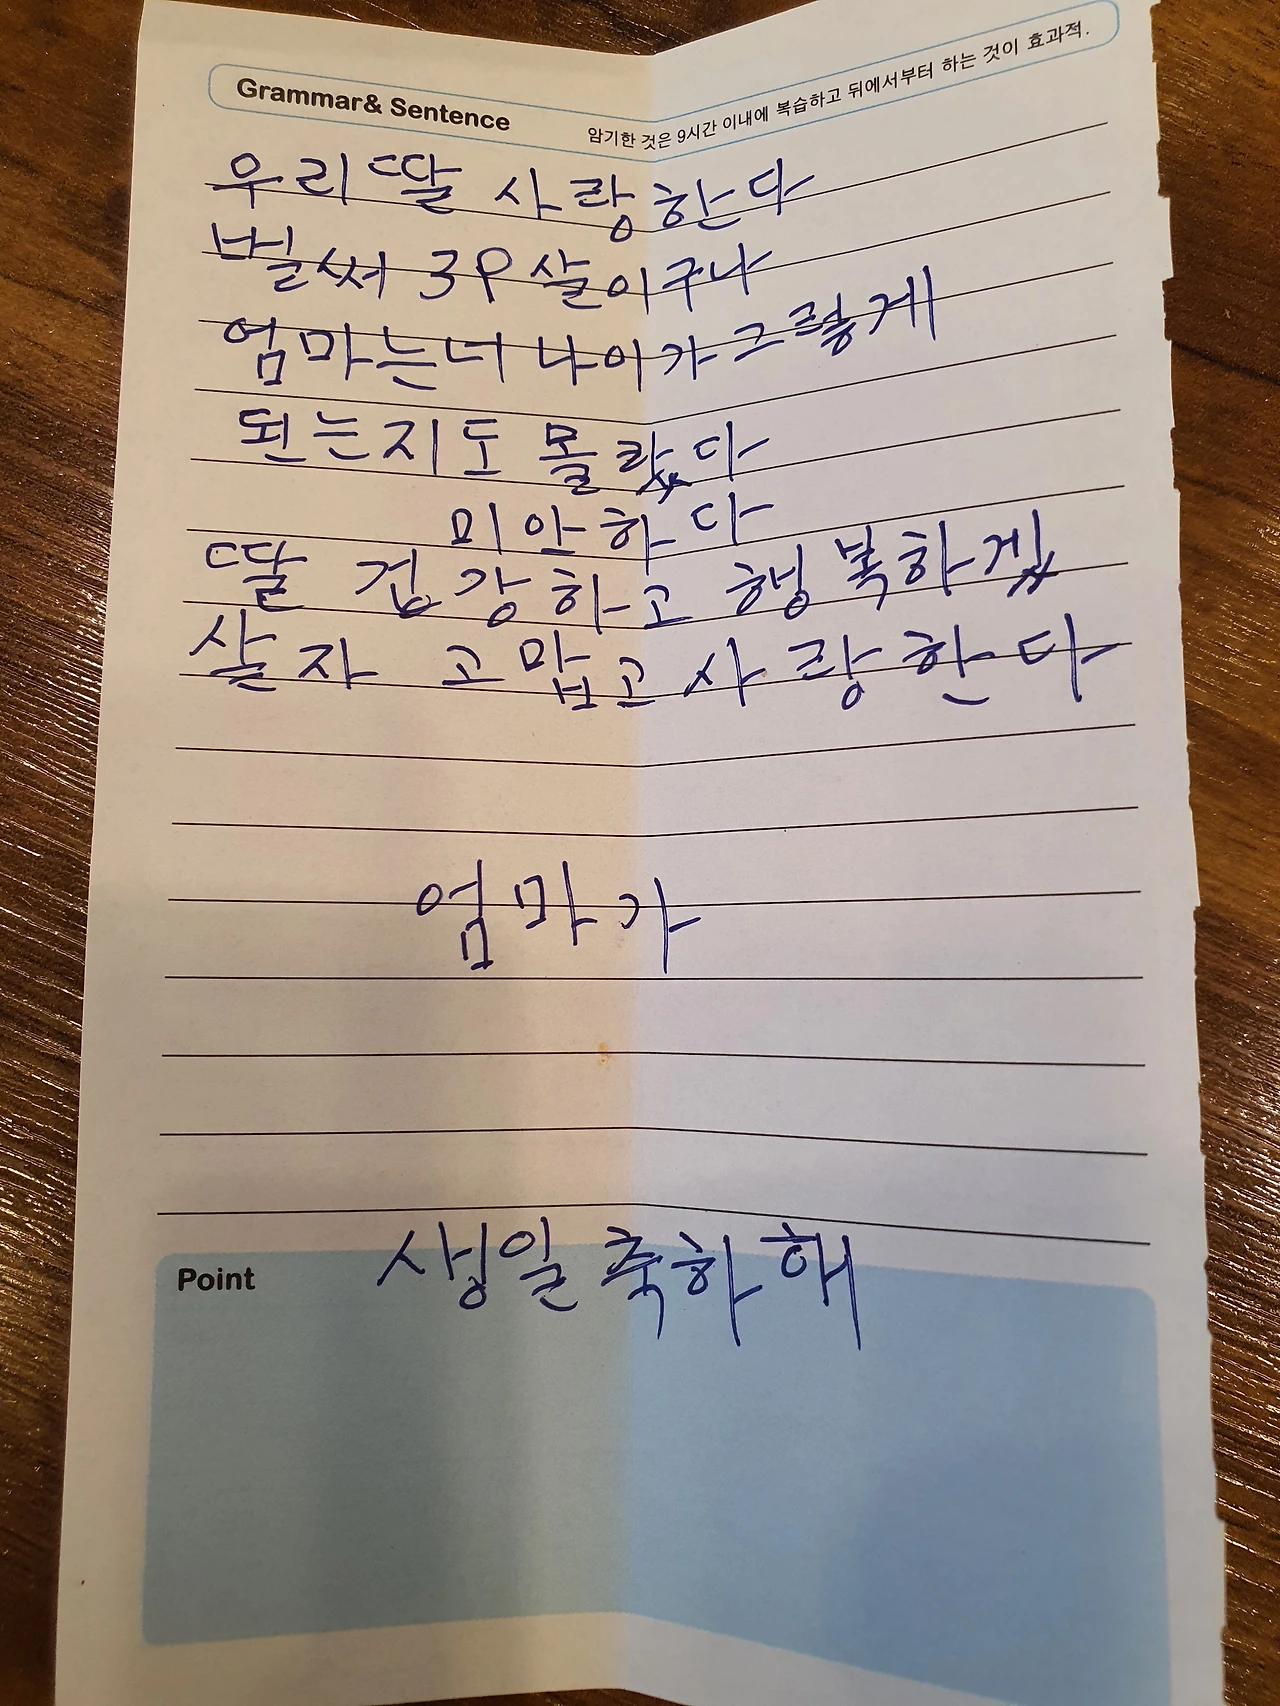 Grammar& Sentence
암기한 것은 9시간 이내에 복습하고 뒤에서부터 하는 것이 효과적.
우리 딸 사랑한다
벌써 39살이구나
엄마는 너 나이가 그렇게
된는지도 몰랐다
미안하다
딸 겅강하고 행복하겠
살자 고맙고 사랑한다
엄마가
Point
생일 축하해